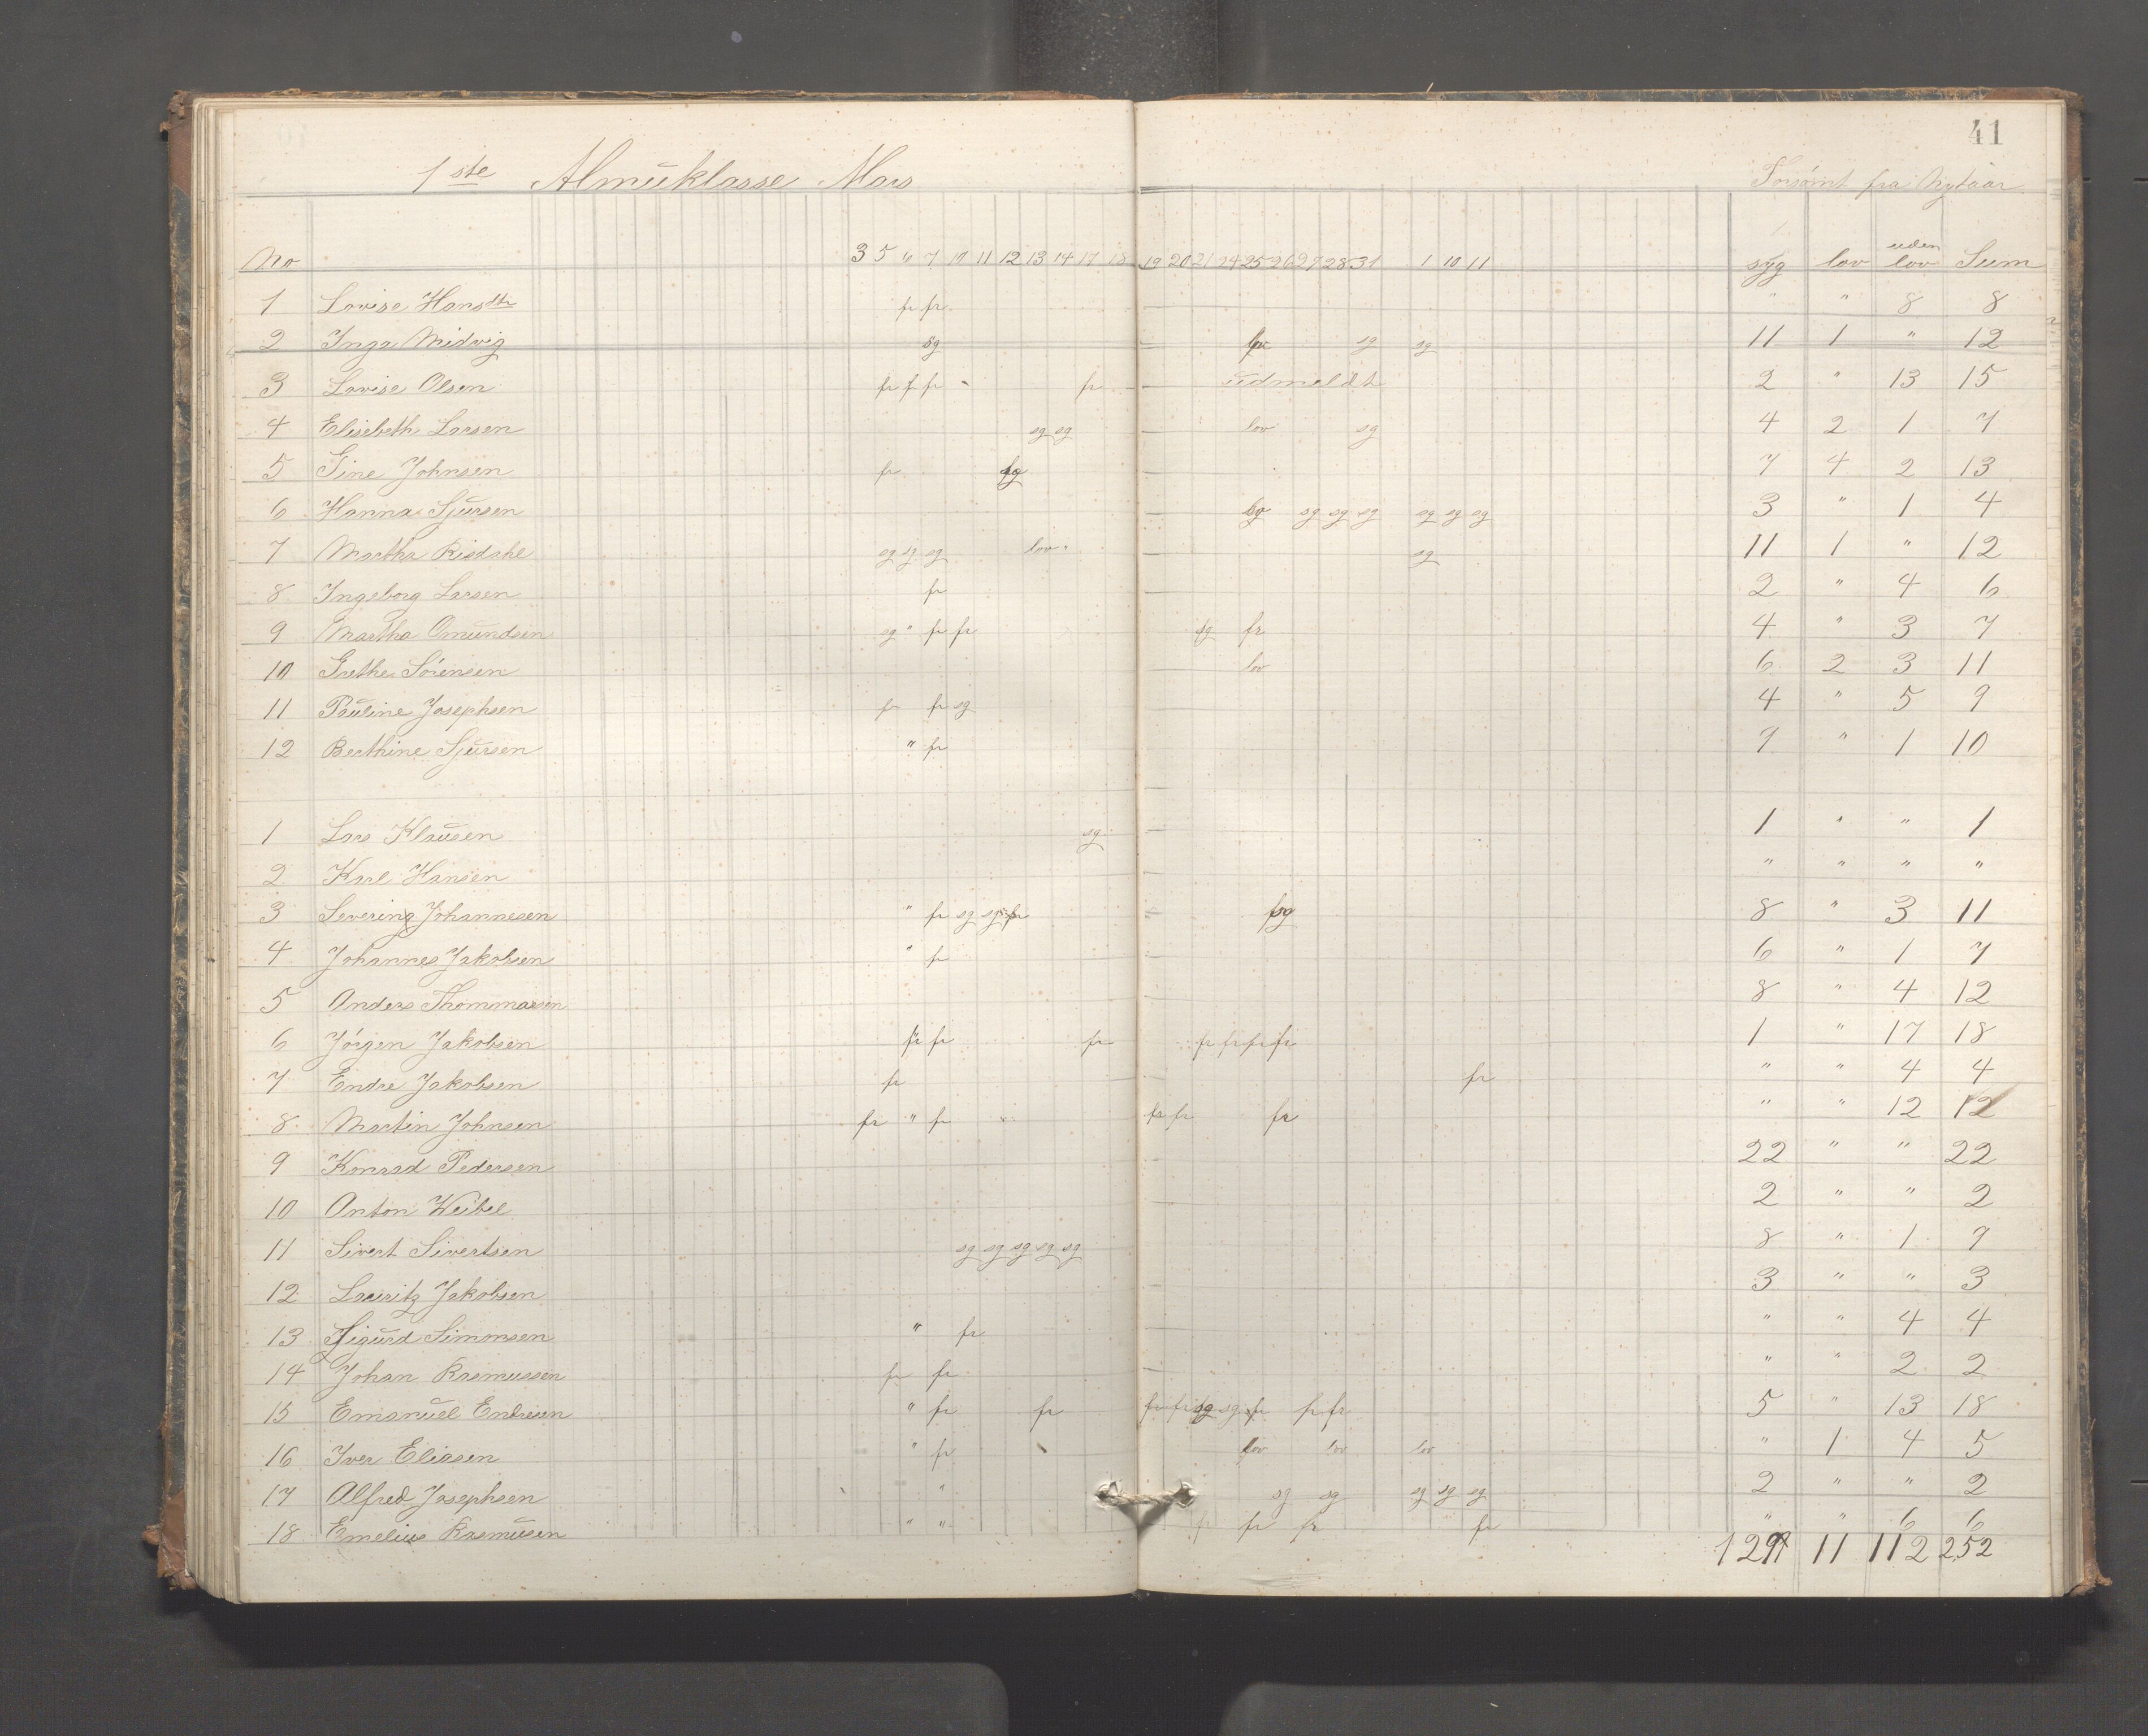 41
1ste Almueklasse Mars Forsömt fra Nytaar
No 3 5 6 7 10 11 12 13 14 17 18 19 20 21 24 25 26 27 28 31 1 10 11 syg lov uden lov Sum
1 Lovise Hansdtr fr fr " " 8 8
2 Inga Midvig sg lov sg sg 11 1 " 12
3 Lovise Olsen fr f fr fr udmeldt 2 " 13 15
4 Elisebeth Larsen sg sg lov sg 4 2 1 7
5 Sine Johnsen fr sg 7 4 2 13
6 Hanna Sjursen sg sg sg sg sg sg sg 3 " 1 4
7 Martha Risdahl sg sg sg lov sg 11 1 " 12
8 Ingeborg Larsen fr 2 " 4 6
9 Martha Omundsen sg " fr fr sg fr 4 " 3 7
10 Grethe Sörensen lov 6 2 3 11
11 Pauline Josephsen fr fr sg 4 " 5 9
12 Berthine Sjursen " fr 9 " 1 10
1 Lars Klausen sg 1 " " 1
2 Karl Hansen " " " "
3 Severin Johannesen " fr sg sg fr sg 8 " 3 11
4 Johannes Jakobsen " fr 6 " 1 7
5 Anders Thommasen 8 " 4 12
6 Jörgen Jakobsen fr fr fr fr fr fr fr 1 " 17 18
7 Endre Jakobsen fr fr " " 4 4
8 Martin Johnsen fr " fr fr fr fr " " 12 12
9 Konrad Pedersen 22 " " 22
10 Anton Weibel 2 " " 2
11 Sivert Sivertsen sg sg sg sg sg 8 " 1 9
12 Lauritz Jakobsen 3 " " 3
13 Sigurd Simonsen " fr " " 4 4
14 Johan Rasmussen fr fr " " 2 2
15 Emanuel Endresen " fr fr fr fr sg sg fr fr fr 5 " 13 18
16 Iver Eliasen " fr lov lov lov " 1 4 5
17 Alfred Josephsen " sg sg sg sg sg 2 " " 2
18 Emelius Rasmusen " " fr fr fr fr " " 6 6
129 11 112 252